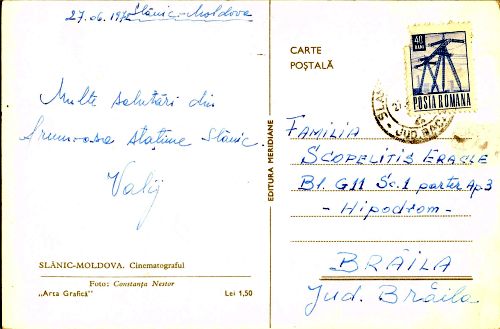 27.06.197 Slănic-Moldova
Multe salutări din
frumoasa stațiune Slănic.
Valy
SLĂNIC-MOLDOVA. Cinematograful
Foto: Constanța Nestor
„Arta Grafică” Lei 1,50
EDITURA MERIDIANE
CARTE
POȘTALĂ
40
BANI
POSTA ROMANA
JUD. BAC
FAMILIA
SCOPELITIS ERACLE
Bl. G11 Sc.1 parter Ap3
- Hipodrom -
BRĂILA
Jud. Brăila